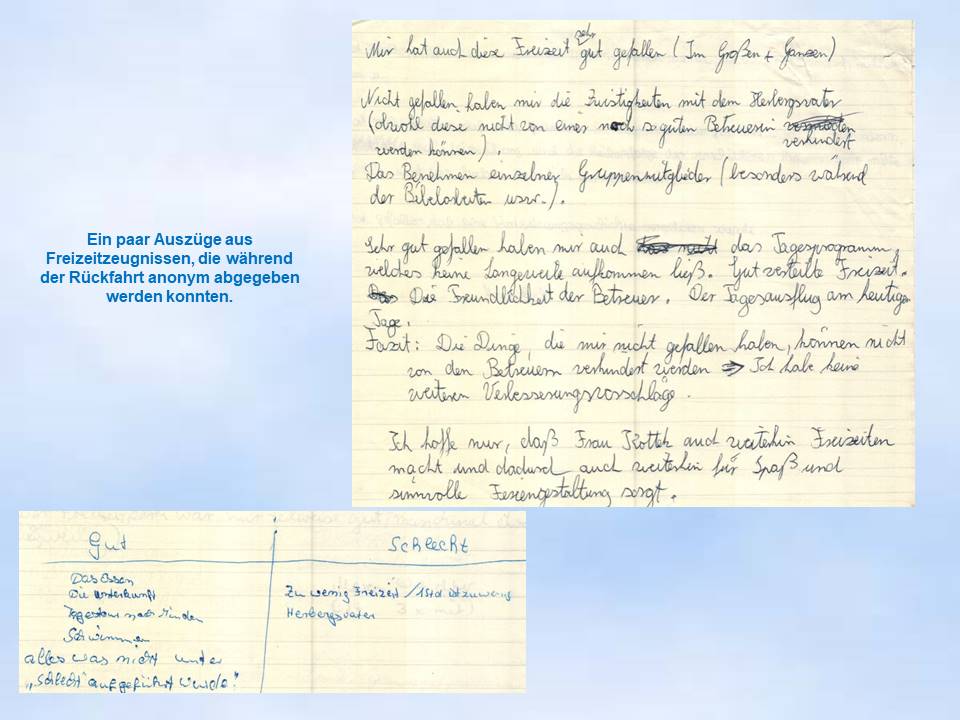 Ein paar Auszüge aus
Freizeitzeugnissen, die während
der Rückfahrt anonym abgegeben
werden konnten.
Mir hat auch diese Freizeit sehr gut gefallen (Im Großen + Ganzen)
Nicht gefallen haben mir die mit dem Herbergsvater
(obwohl diese nicht von einer noch so guten Betreuerin
verhindert
werden können).
Das Benehmen einzelner Gruppenmitglieder (besonders während
der Bibelarbeiten usw.).
Sehr gut gefallen haben mir auch das Tagesprogramm,
welches keine Langeweile aufkommen ließ. Gut verteilte Freizeit.
Die Freundlichkeit der Betreuer. Der Tagesausflug am heutigen
Tage.
Fazit: Die Dinge, die mir nicht gefallen haben, können nicht
von den Betreuern verhindert werden ⇒ Ich habe keine
weiteren Verbesserungsvorschläge.
Ich hoffe nur, daß Frau auch weiterhin Freizeiten
macht und dadurch auch weiterhin für Spaß und
sinnvolle Feriengestaltung sorgt.
Gut Schlecht
Das Essen
Die Unterkunft Zu wenig Freizeit / 1 Std. ist zu wenig
nach Minden Herbergsvater
Schwimmen
alles was nicht unter
„Schlecht" aufgeführt wurde!